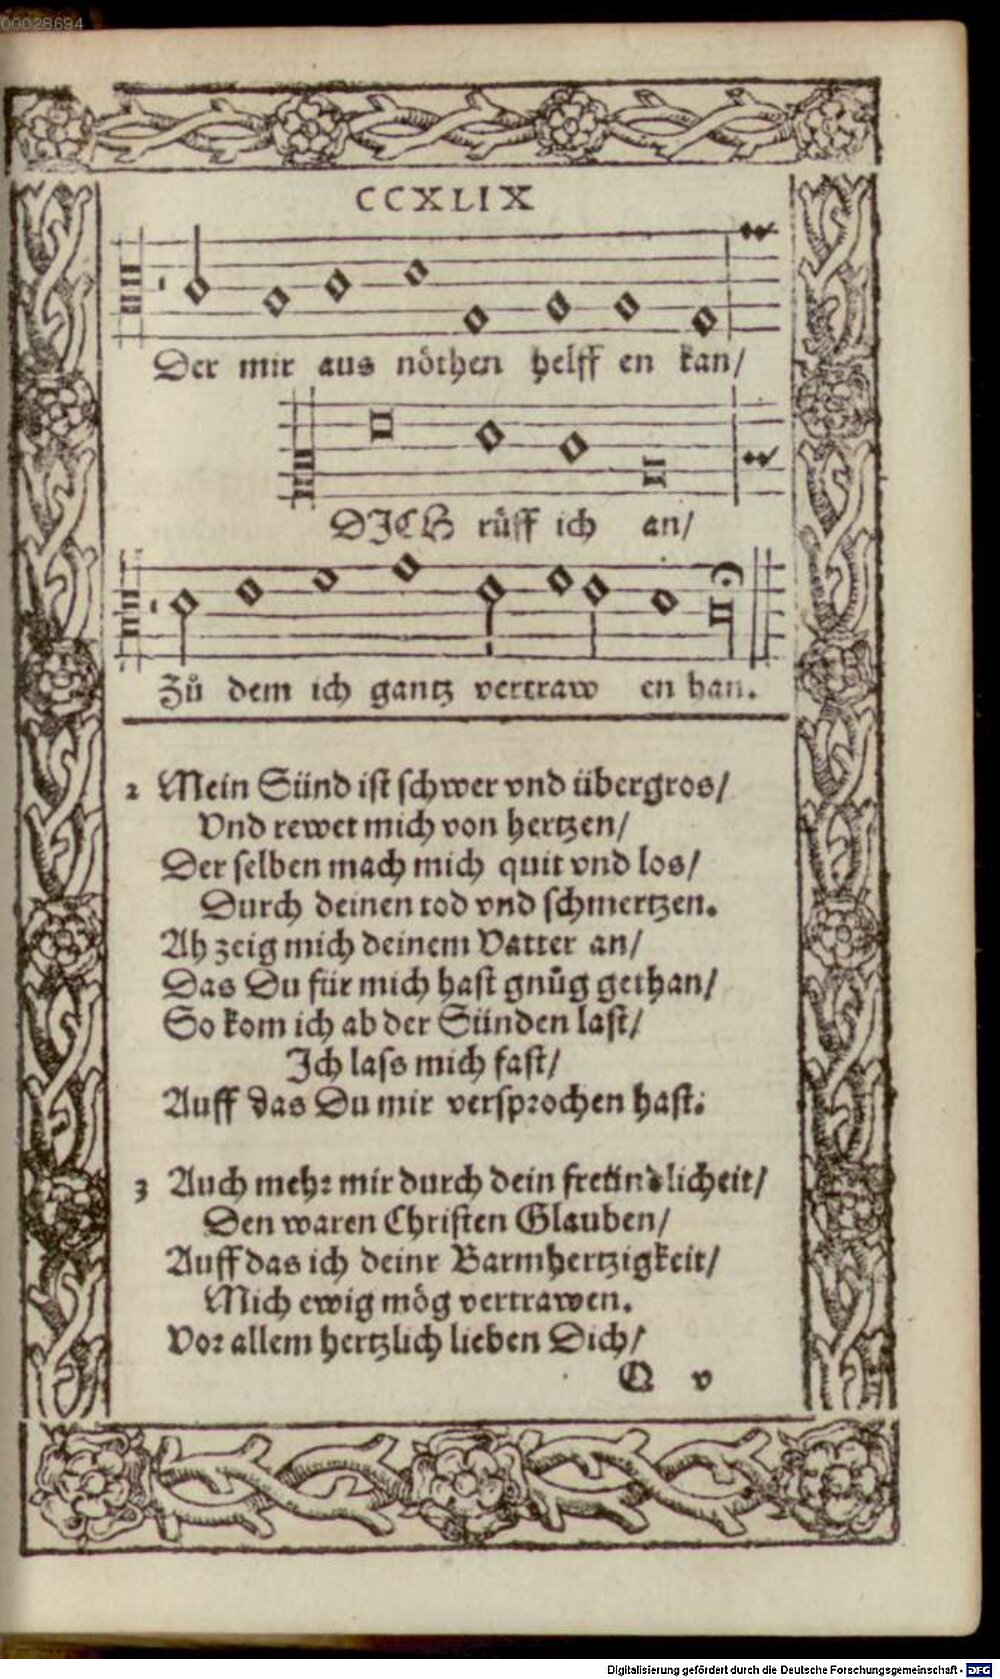 00028694
CCXLIX
Der mir aus nöthen helff en kan/
DICH rüff ich an/
Zů dem ich gantz vertraw en han.
2 Mein Sünd ist schwer vnd übergros/
Vnd rewet mich von hertzen/
Der selben mach mich quit vnd los/
Durch deinen tod vnd schmertzen.
Ah zeig mich deinem Vatter an/
Das Du für mich hast gnůg gethan/
So kom ich ab der Sünden last/
Ich lass mich fast/
Auff das Du mir versprochen hast.
3 Auch mehr mir durch dein freündlicheit/
Den waren Christen Glauben/
Auff das ich deinr Barmhertzigkeit/
Mich ewig mög vertrawen.
Vor allem hertzlich lieben Dich/
Q v
Digitalisierung gefördert durch die Deutsche Forschungsgemeinschaft - DFG